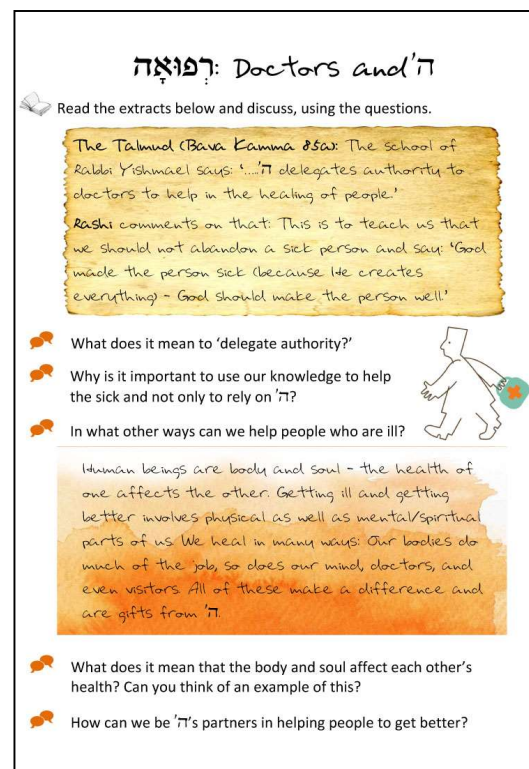 רְפוּאָה: Doctors and ה'
Read the extracts below and discuss, using the questions.
The Talmud (Bava Kamma 85a): The school of
Rabbi Yishmael says: '....ה' delegates authority to
doctors to help in the healing of people.'
Rashi comments on that: This is to teach us that
we should not abandon a sick person and say: 'God
made the person sick (because He creates
everything) - God should make the person well.'
What does it mean to 'delegate authority?'
Why is it important to use our knowledge to help
the sick and not only to rely on ה'?
In what other ways can we help people who are ill?
Human beings are body and soul - the health of
one affects the other. Getting ill and getting
better involves physical as well as mental/spiritual
parts of us. We heal in many ways: Our bodies do
much of the job, so does our mind, doctors, and
even visitors. All of these make a difference and
are gifts from ה'.
What does it mean that the body and soul affect each other's
health? Can you think of an example of this?
How can we be ה's partners in helping people to get better?